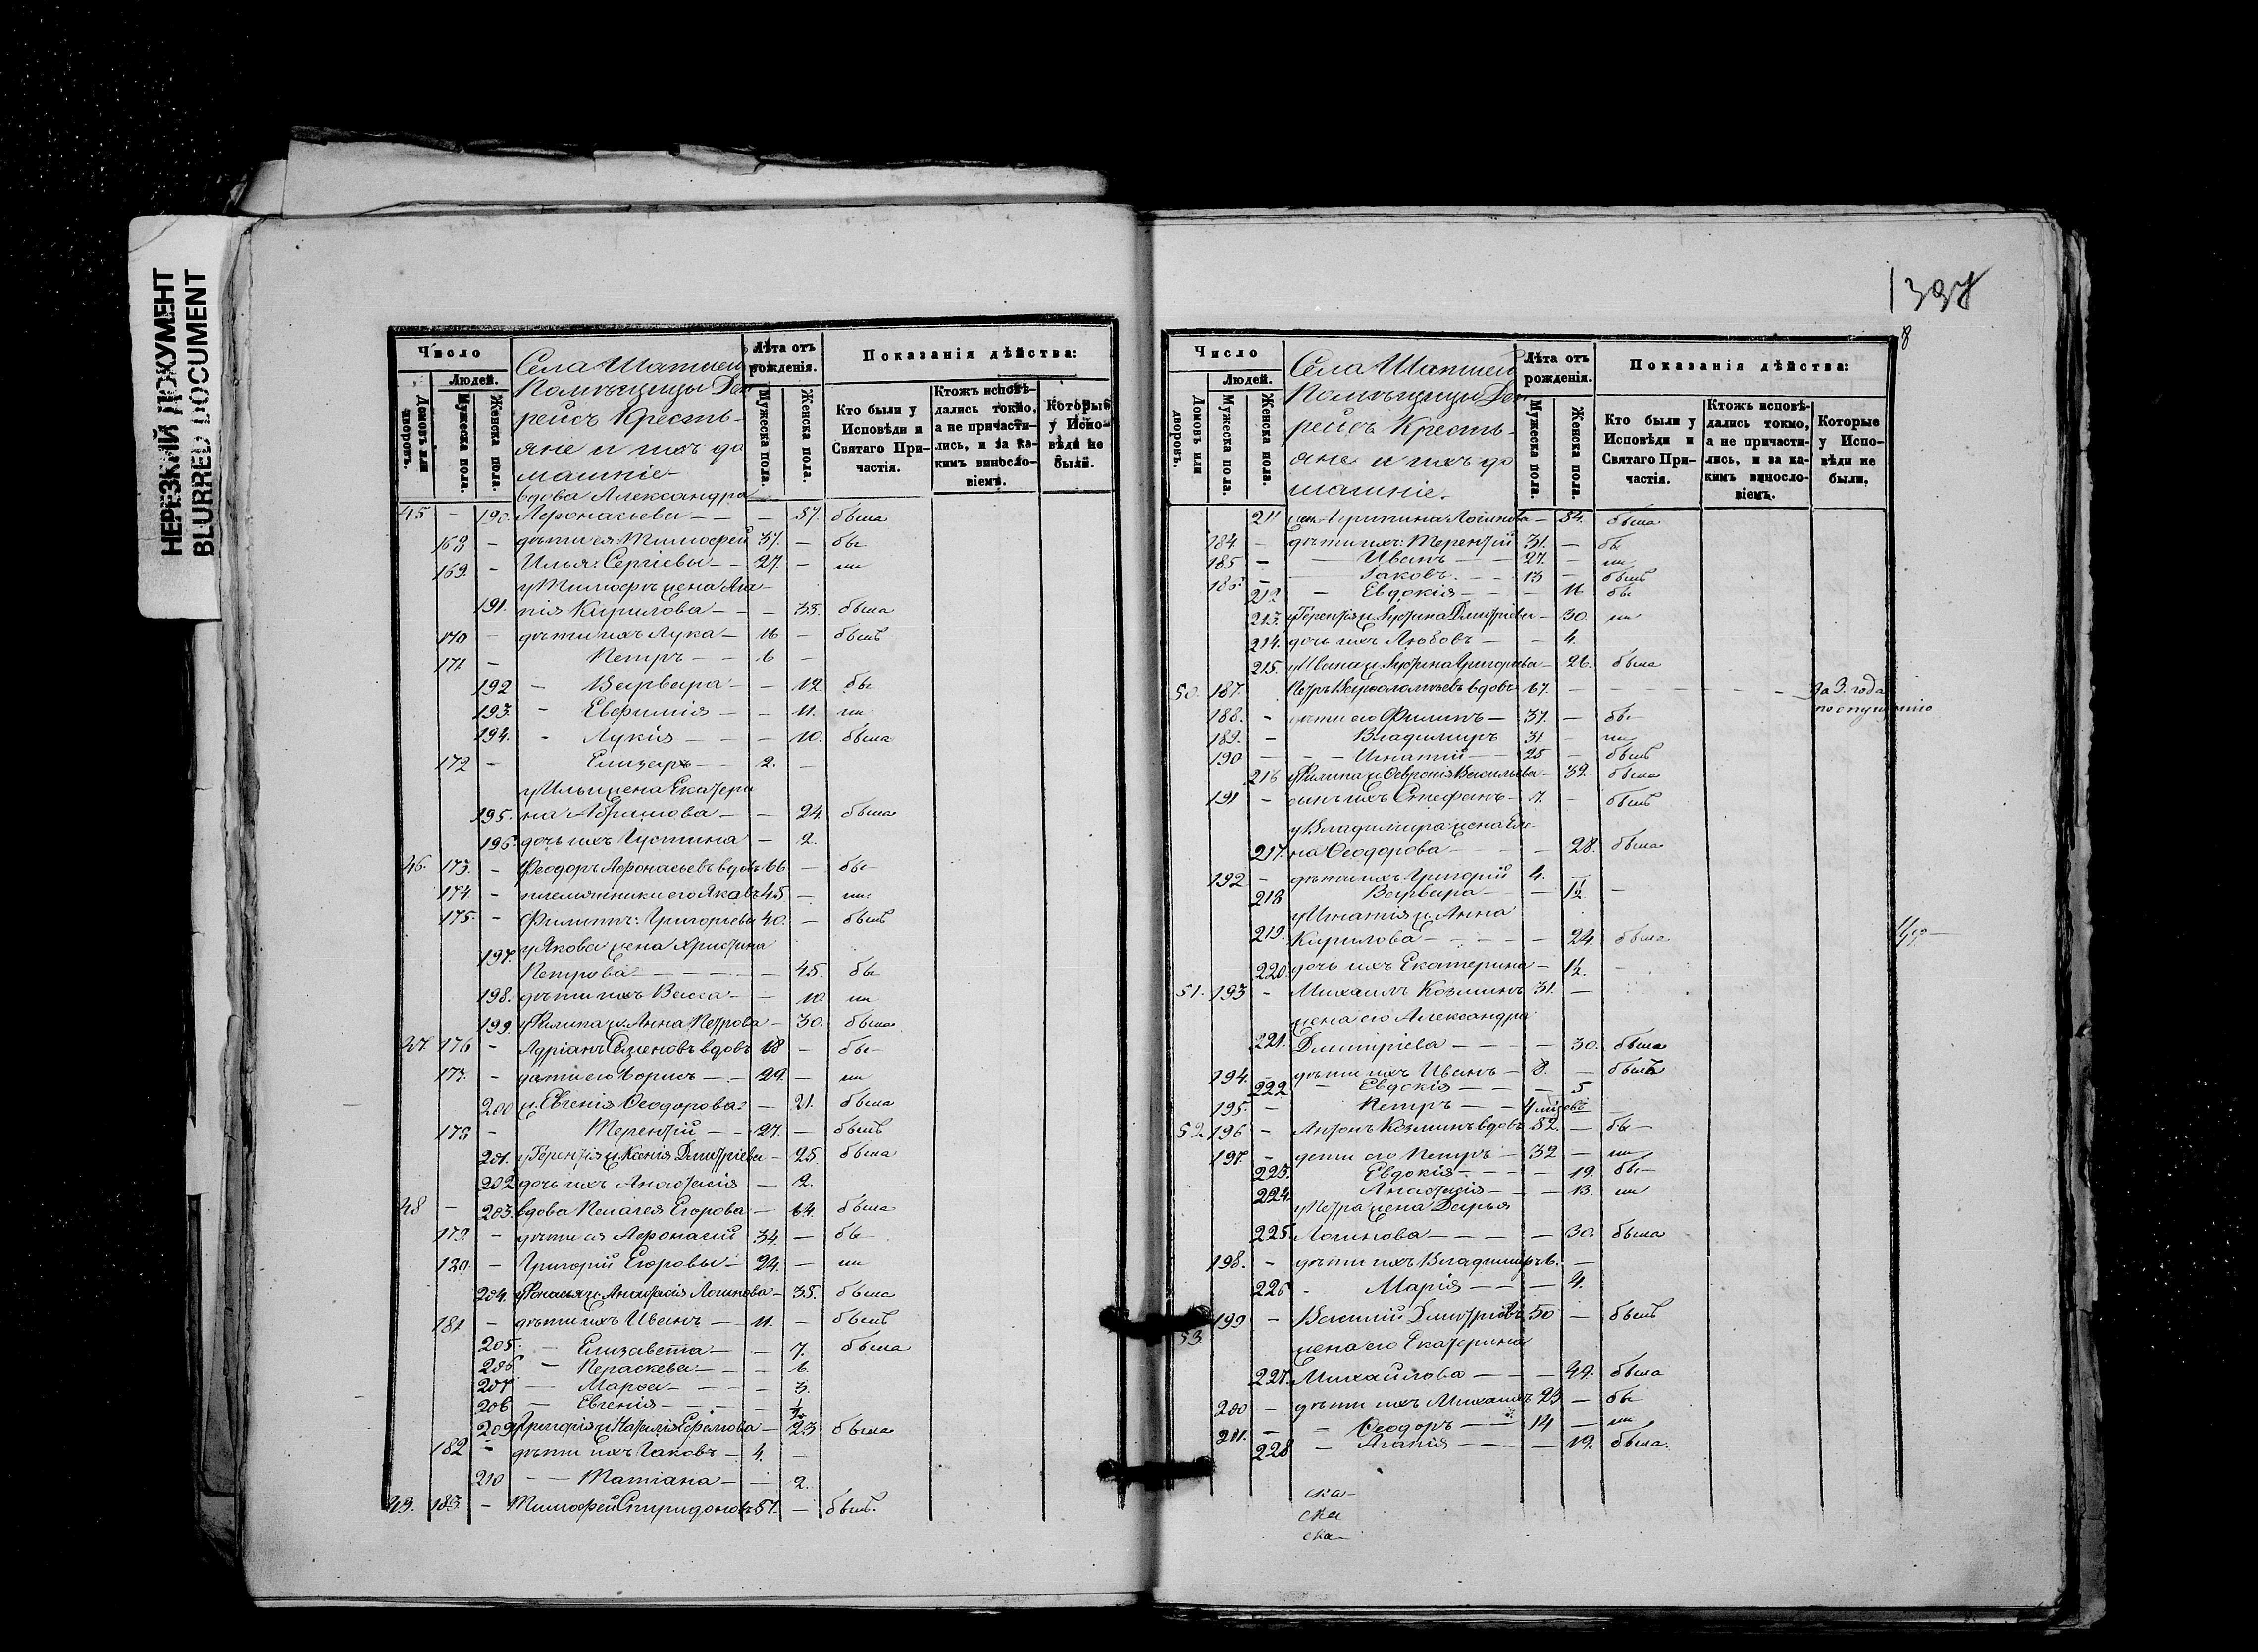 НЕРЕЗКИЙ ДОКУМЕНТ
BLURRED DOCUMENT
Число
Людей.
Домовъ или дворовъ.
Мужеска пола.
Женска пола.
Села
Помѣщицы
рейсъ Кресть-
яне и ихъ до
машніе
Лѣта отъ рожденія.
Мужеска пола.
Женска пола.
Показанія дѣйства:
Кто были у Исповѣди и Святаго При-частія.
Ктожъ исповѣ-дались токмо, а не причасти-лись, и за ка-кимъ виносло-віемъ.
Которые у Испо-вѣди не были.
вдова Александра
45 — 190. Афонасьева — — 57. была
168 — дѣти ея: Тимофей 37. — бы
169. — Илья: Сергіевы — 27. — ли
у Тимофѣ жена Ага-
191. пія Кирилова — — 35. была
170 — дѣти ихъ Лука — 16 — былъ
171 — Петръ — — 6 —
192 — Варвара — — 12. бы
193. — Евфимія — — 11. ли
194. — Лукія — — 10. была
172 — Елизаръ — — 2. —
у Ильи жена Екатери
195. на Абрамова — — 24. была
196. дочь ихъ Іустина — 2.
46. 173. — Феодоръ Афонасьевъ вдовъ 66 — бы
174. — племянники его Яковъ 45. — ли
175. — Филиппъ: Григорьевы 40. — былъ
197. у Якова жена Христина
Петрова — — — 45. бы
198. дѣти ихъ Васса — — 10. ли
199. у Филипа ж. Анна Петрова — 30. была
47. 176 — Адріанъ Семеновъ вдовъ 68 — бы
177. — дѣти его Борисъ — — 29. — ли
200 ж. Евгенія Феодорова — 21. была
178 — Терентій — — 27. — былъ
201. у Терентія ж. Ксенія Дмитріева — 25. была
202 дочь ихъ Анастасія — 2.
48 — 203. вдова Пелагея Егорова — 64. была
179. — дѣти ея Афонасій 34. — бы
180. — Григорій Егоровы — 24. — ли
204. у Афонасья ж. Анастасія Логинова — 35. была
181 — дѣти ихъ Иванъ — — 11. — былъ
205. — Елизавета — — 7. была
206 — Параскева — — 6.
207 — Марфа — — 3.
208 — Евгенія — — ½
209 у Григорія ж. Наталія Ефимова — 23 была
182 — дѣти ихъ Іаковъ — 4. —
210 — — Татіана — — 2.
49. 183. — Тимофей Спиридоновъ 57. — былъ.
1397
8
Число
Людей.
Домовъ или дворовъ.
Мужеска пола.
Женска пола.
Села
Помѣщицы
рейсъ Кресть-
яне и ихъ до
машніе.
Лѣта отъ рожденія.
Мужеска пола.
Женска пола.
Показанія дѣйства:
Кто были у Исповѣди и Святаго При-частія.
Ктожъ исповѣ-дались токмо, а не причасти-лись, и за ка-кимъ виносло-віемъ.
Которые у Испо-вѣди не были.
211 жен. Агрипина Логинова — 54. была
184 — дѣти ихъ: Терентій 31. — бы
185 — — Иванъ — 27. — ли
186. — Іаковъ. — — 13 — былъ
212 — Евдокія — — 16 бы
213. у Терентія ж. Іустина Дмитріева — 30. ли
214. дочь ихъ Любовъ — — 4.
215. у Ивана ж. Іустина Григорьева — 26. была
50. 187. Петръ Варфоломѣевъ вдовъ 67. — — — — — за 3. года по опущенію
188. — дѣти его Филипъ — 37. — бы
189. — Владимиръ 31. — ли
190 — — Игнатій — 25 — былъ
216 у Филипа ж. Февронія Васильева — 32. была
191 — сынъ ихъ Стефанъ — 7. — былъ
у Владимира жена Еле-
217. на Феодорова — — — 28. была
192 — дѣти ихъ Григорій 4. —
218 Варвара — — 1½. —
у Игнатія ж. Анна
219. Кирилова — — — — 24. была
220. дочь ихъ Екатерина — 1½. —
51. 193 — Михаилъ Козминъ 31. —
жена его Александра
221. Дмитріева — — — — 30. была
194. — дѣти ихъ Иванъ — 8. — былъ
222 — Евдокія — — — 5
195. — Петръ — —
52 196 — Антонъ Козминъ вдовъ 52. — бы —
197. — дети его Петръ — 32 — ли
223. Евдокія — — — 19. бы —
224. Анастасія — — 13. ли
у Петра жена Дарья
225. Логинова — — — — 30. была
198. — дѣти ихъ Владимиръ 6. —
226 — Марія — — — 4.
53. 199 — Василій Дмитріевъ 50 — былъ
жена его Екатерина
227. Михайлова — — — 49. была
200 — дѣти ихъ Михаилъ 23 — бы
201. — — Феодоръ — 14 — ли
228 — Агапія — — — 19. была.
ска —
ска
ска —